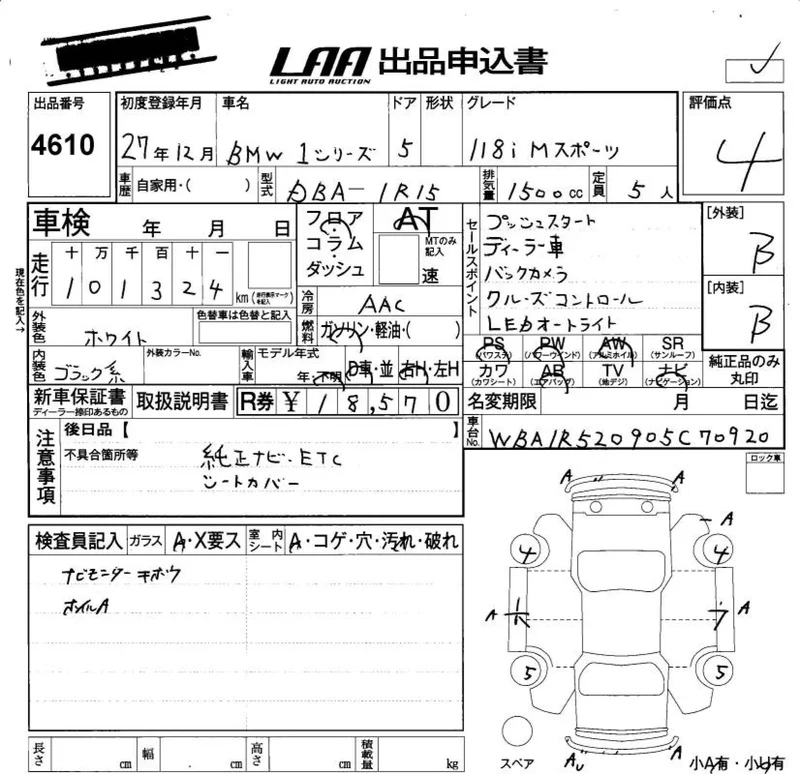 LAA 出品申込書
LIGHT AUTO AUCTION
出品番号 初度登録年月 車名 ドア 形状 グレード 評価点
4610 27年12月 BMW 1シリーズ 5 118i Mスポーツ 4
車歴 自家用・( ) 型式 DBA-1R15 排気量 1500cc 定員 5人
車検 年 月 日
フロア・コラム・ダッシュ AT MTのみ記入 速
走行 十 万 千 百 十 一
101324 km (走行表示マークを記入)
現在色を記入→
冷房 AAC
燃料 ガソリン・軽油・( )
外装色 ホワイト 色替車は色替と記入
内装色 ブラック系 外装カラーNo. 輸入車 モデル年式 年・不明 D車・並 右H・左H
セールスポイント
プッシュスタート
ディーラー車
バックカメラ
クルーズコントロール
LEDオートライト
[外装] B
[内装] B
PS (パワステ) PW (パワーウインド) AW (アルミホイル) SR (サンルーフ)
カワ (カワシート) AB (エアバッグ) TV (地デジ) ナビ (ナビゲーション)
純正品のみ丸印
新車保証書 ディーラー捺印あるもの 取扱説明書 R券 ¥18,570
名変期限 月 日迄
車台No. WBA1R520905C70920
注意事項 後日品【 】
不具合箇所等 純正ナビ・ETC
シートカバー
ロック車
検査員記入 ガラス A・X要ス 室内シート A・コゲ・穴・汚れ・破れ
ナビモニター キボウ
ホイルA
A A
A
4 4
A A
5 5
スペア A A
小A有・小U有
長さ cm 幅 cm 高さ cm 積載量 kg